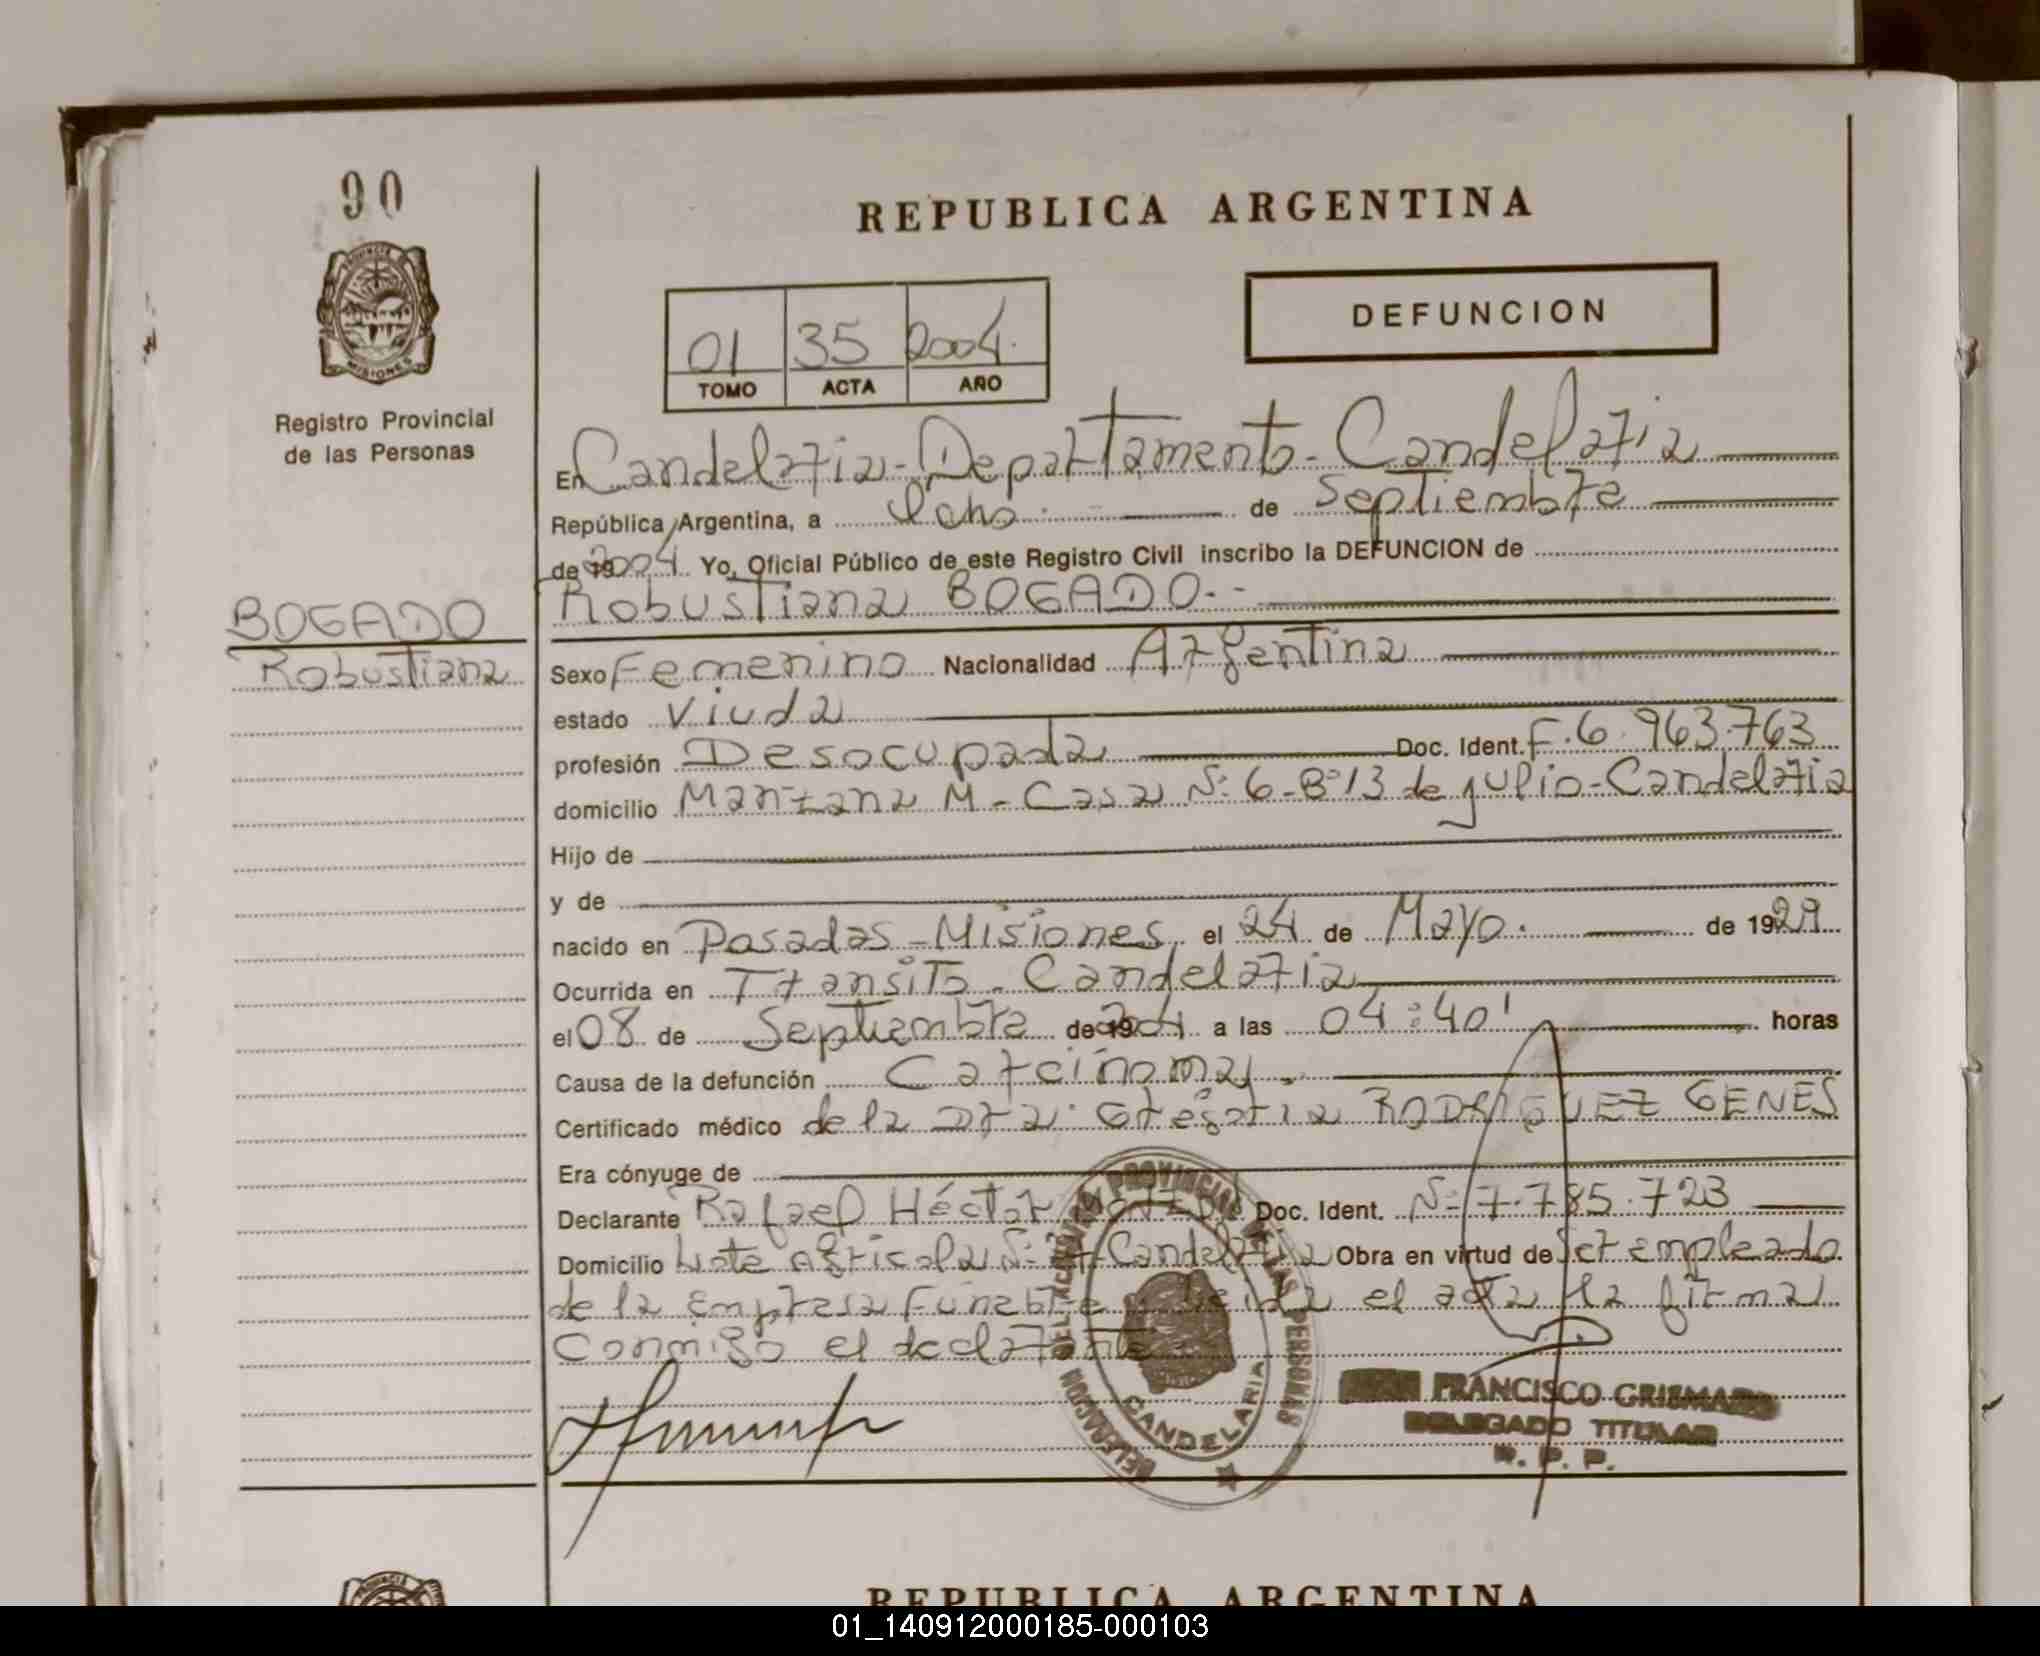 90
REPUBLICA ARGENTINA
PROVINCIA
MISIONES
01 35 2004.
TOMO ACTA AÑO
DEFUNCION
Registro Provincial
de las Personas
En Candelaria - Departamento - Candelaria
República Argentina, a Ocho de Septiembre
de 19 2004 Yo, Oficial Público de este Registro Civil inscribo la DEFUNCION de
Robustiana BOGADO.-
BOGADO
Robustiana
Sexo Femenino Nacionalidad Argentina
estado Viuda
profesión Desocupada Doc. Ident. F. 6.963.763
domicilio Manzana M - Casa Nº 6 - Bº 13 de julio - Candelaria
Hijo de
y de
nacido en Posadas - Misiones, el 24 de Mayo. de 1929
Ocurrida en Transito - Candelaria
el 08 de Septiembre de 19 2004 a las 04:40' horas
Causa de la defunción Carcinoma
Certificado médico de la Dra. Gregoria RODRIGUEZ GENES
Era cónyuge de
Declarante Rafael Héctor Doc. Ident. Nº 7.785.723
Domicilio Lote Agricola Nº Candelaria Obra en virtud de Ser empleado
de la Empresa Funebre leida el acta la firma
Conmigo el declarante
DELEGACION DEL REGISTRO PROVINCIAL DE LAS PERSONAS
CANDELARIA
FRANCISCO GRISMADO
DELEGADO TITULAR
R. P. P.
REPUBLICA ARGENTINA
01_140912000185-000103